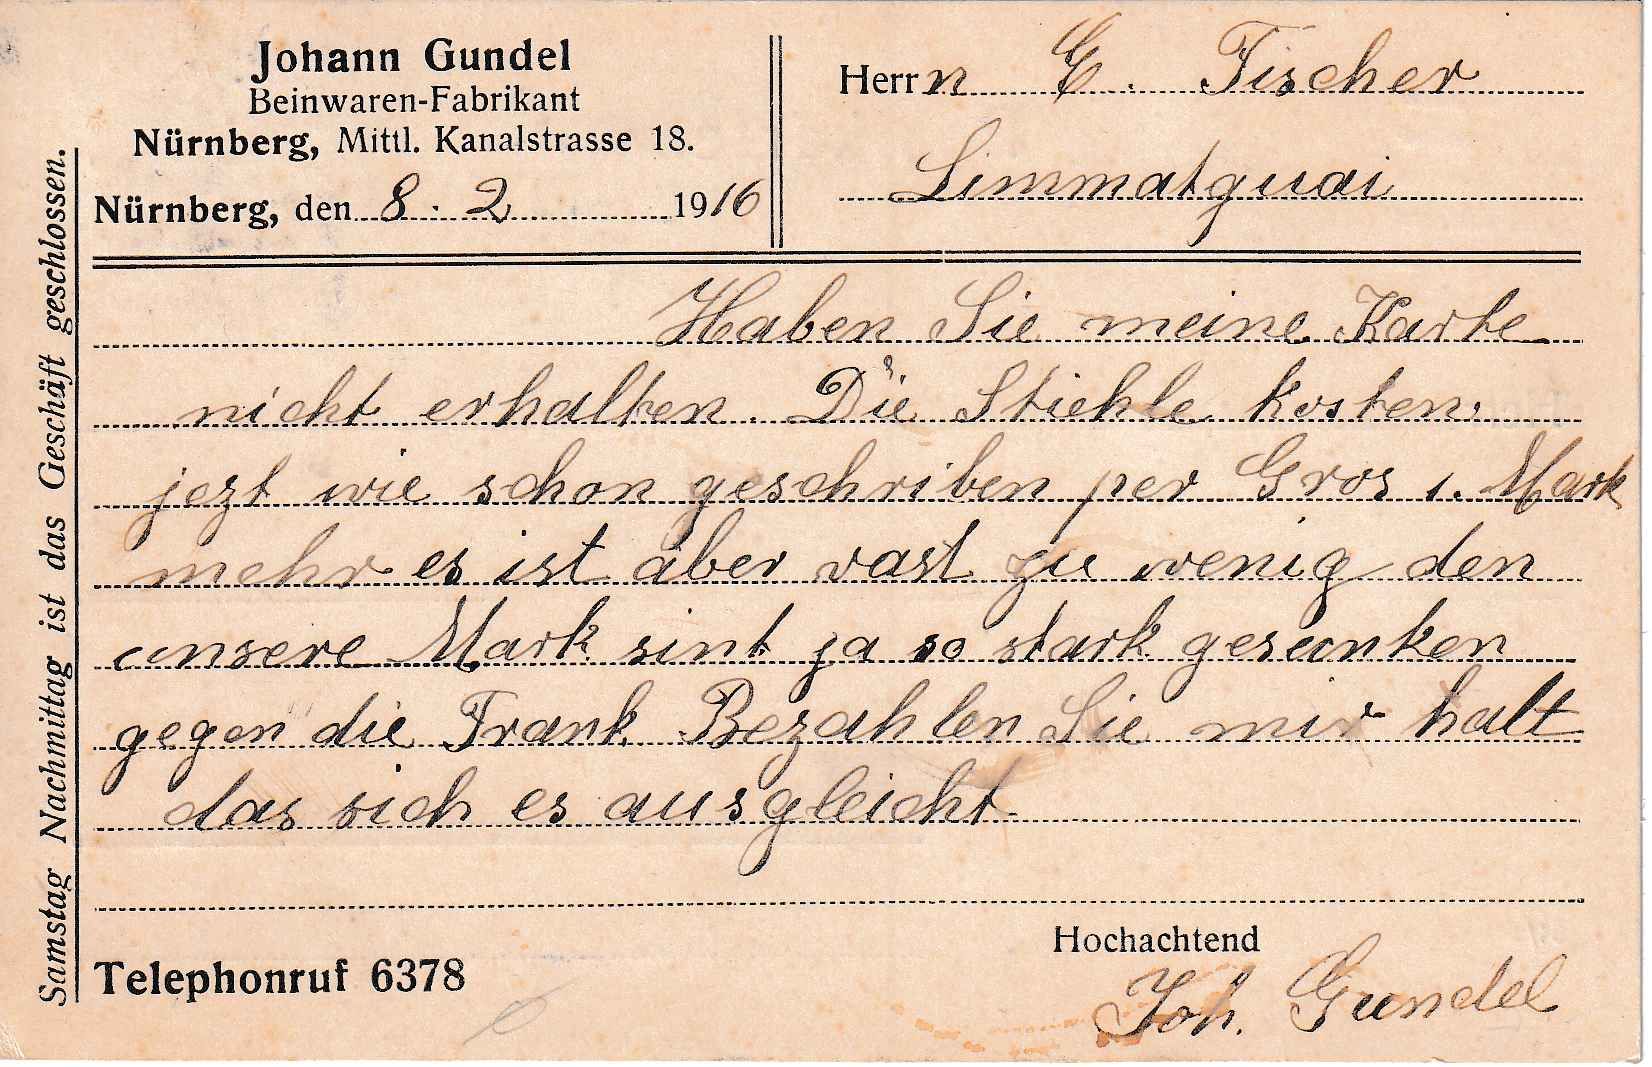 Johann Gundel
Beinwaren-Fabrikant
Nürnberg, Mittl. Kanalstrasse 18.
Nürnberg, den 8. 2 1916
Herrn E. Fischer
Limmatquai
Samstag Nachmittag ist das Geschäft geschlossen.
Haben Sie meine Karte
nicht erhalten. Die Stiehle kosten
jezt wie schon geschriben per Gros 1. Mark
mehr es ist aber vast zu wenig den
unsere Mark sint ja so stark gesunken
gegen die Frank Bezahlen Sie mir halt
das sich es ausgleicht
Hochachtend
Joh. Gundel
Telephonruf 6378